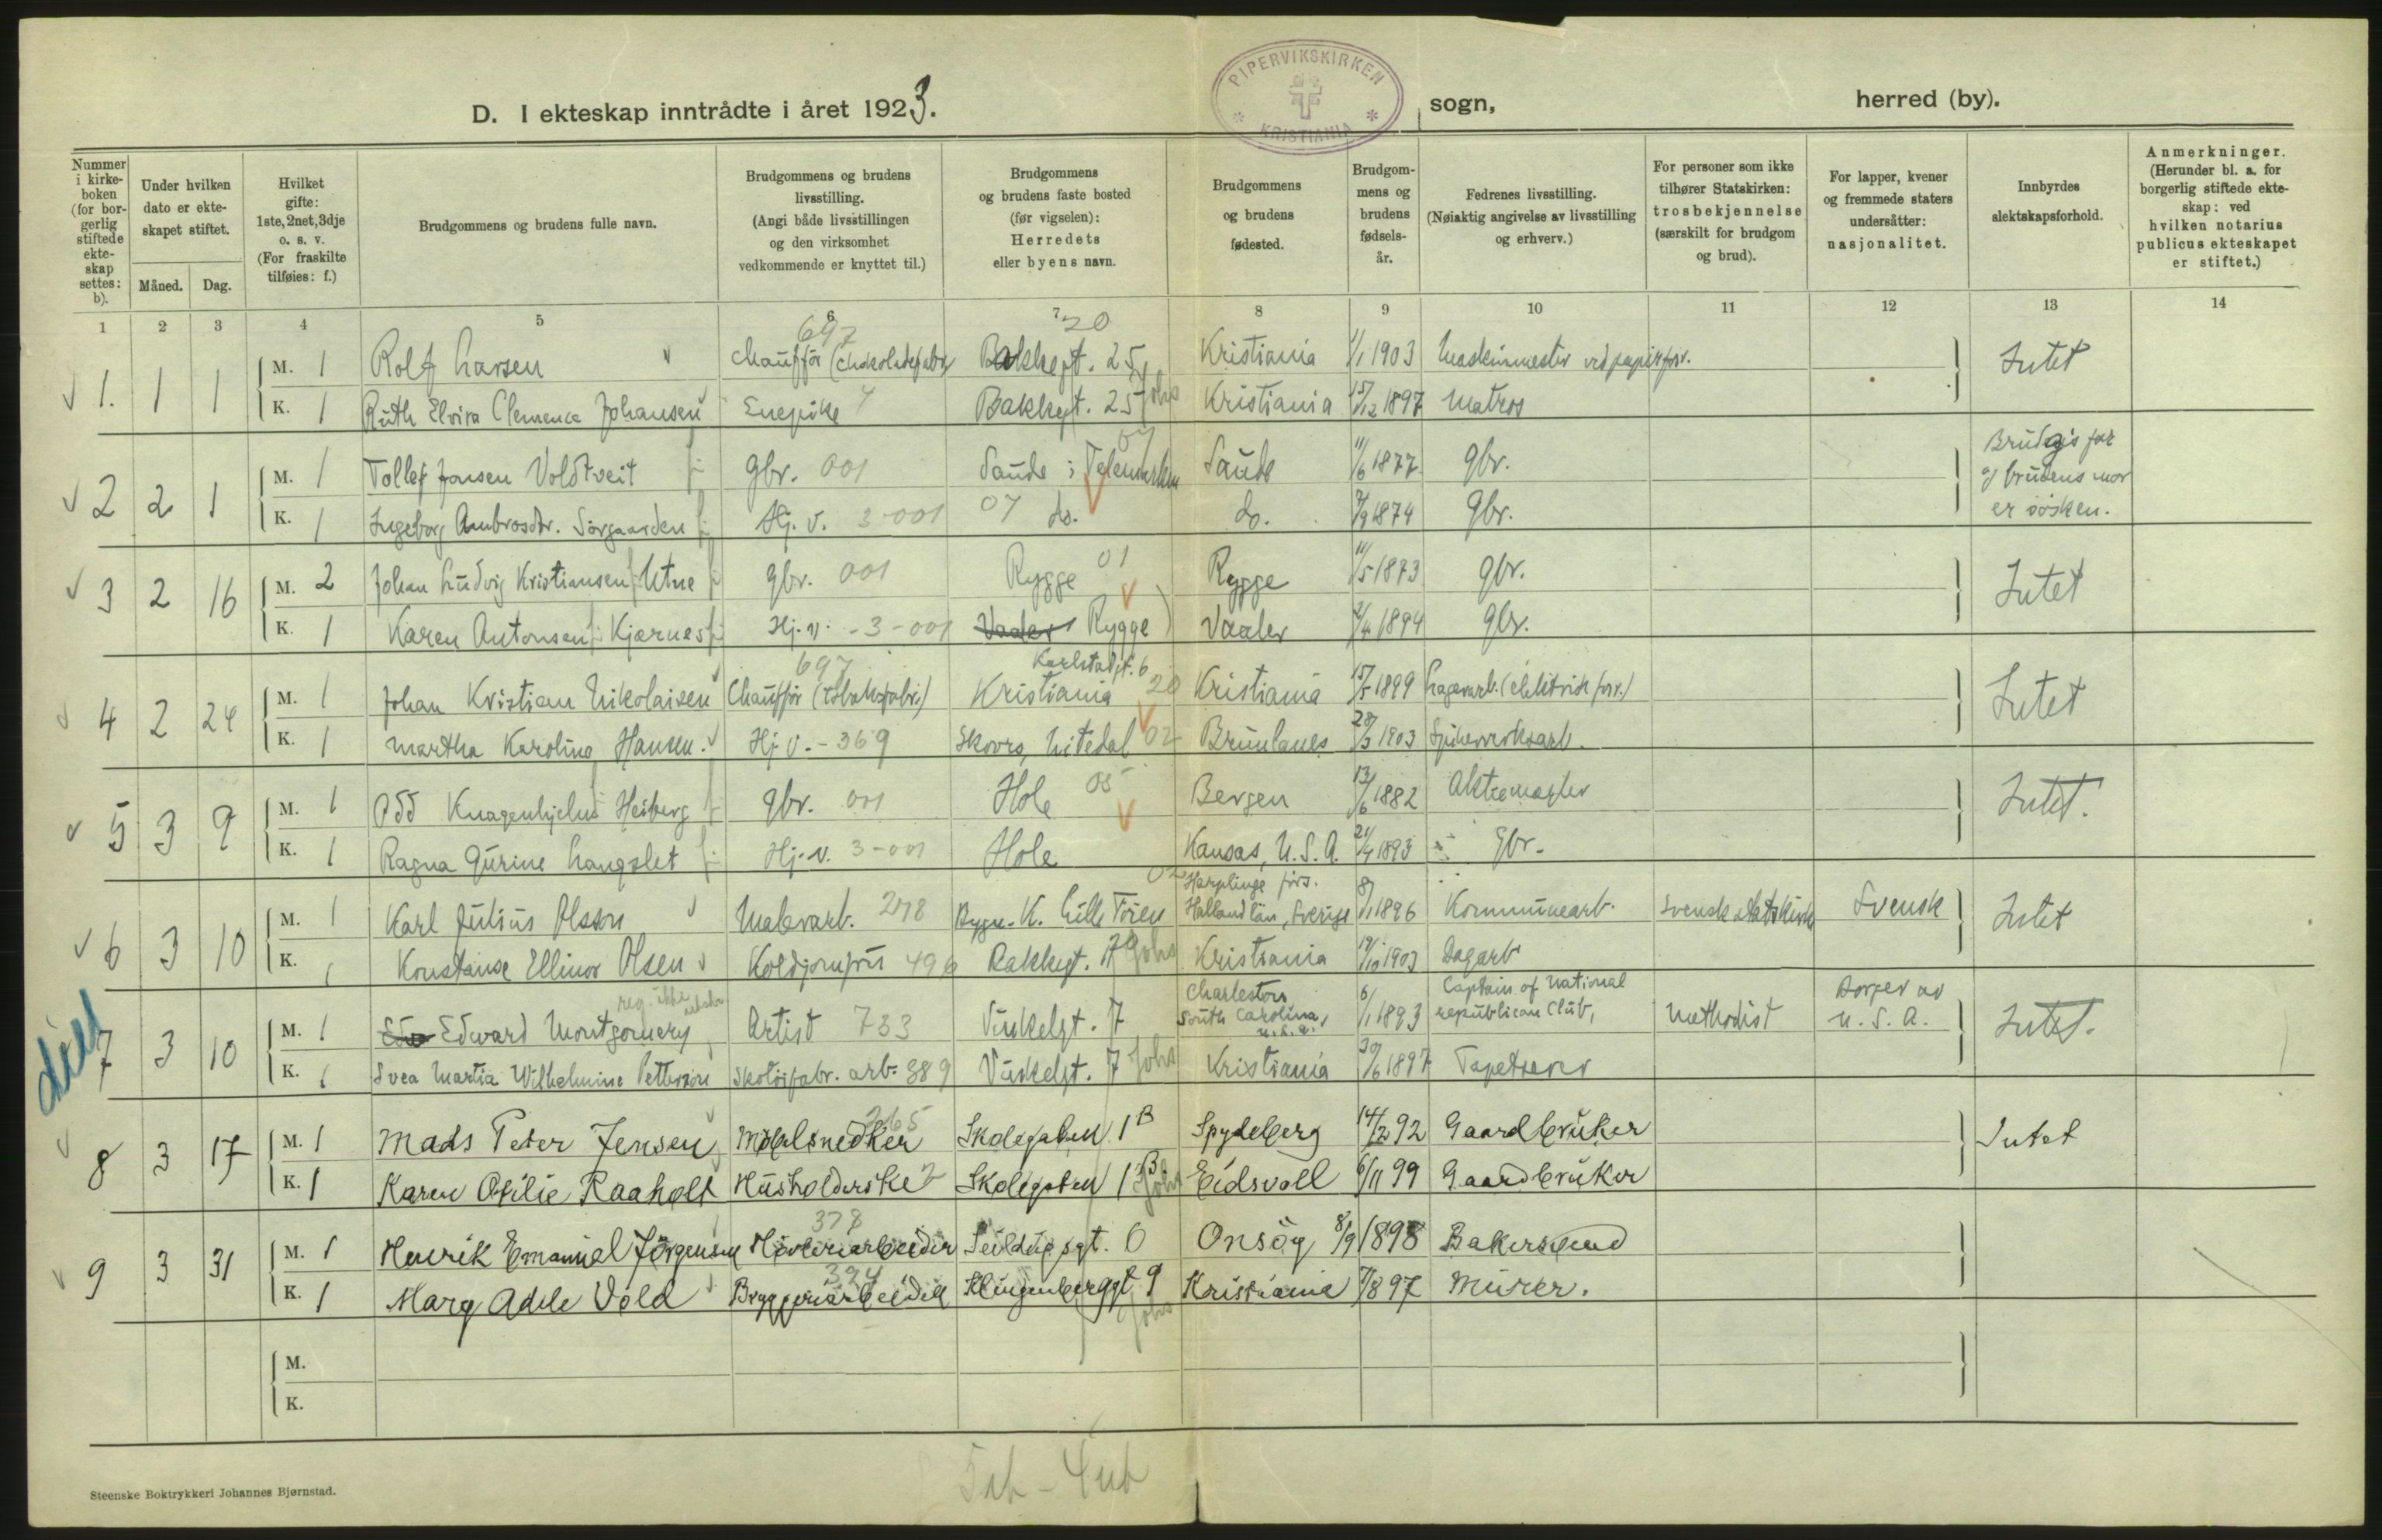 PIPERVIKSKIRKEN
KRISTIANIA
D. I ekteskap inntrådte i året 1923.
sogn,
herred (by).
Nummer i kirkeboken (for borgerlig stiftede ekteskap settes: b).
Under hvilken dato er ekteskapet stiftet.
Måned. Dag.
Hvilket gifte: 1ste, 2net, 3dje o. s. v. (For fraskilte tilføies: f.)
Brudgommens og brudens fulle navn.
Brudgommens og brudens livsstilling. (Angi både livsstillingen og den virksomhet vedkommende er knyttet til.)
Brudgommens og brudens faste bosted (før vigselen): Herredets eller byens navn.
Brudgommens og brudens fødested.
Brudgommens og brudens fødselsår.
Fedrenes livsstilling. (Nøiaktig angivelse av livsstilling og erhverv.)
For personer som ikke tilhører Statskirken: trosbekjennelse (særskilt for brudgom og brud).
For lapper, kvener og fremmede staters undersåtter: nasjonalitet.
Innbyrdes slektskapsforhold.
Anmerkninger. (Herunder bl. a. for borgerlig stiftede ekteskap: ved hvilken notarius publicus ekteskapet er stiftet.)
1 2 3 4 5 6 7 8 9 10 11 12 13 14
697 20
1. 1 1 M. 1 Rolf Larsen Chaufför (Chokoladefabr) Bakkegt. 25 Kristiania 1/1 1903 Maskinmester ved papirfor. Intet
K. 1 Ruth Elvira Clemence Johansen Enepike 4 Bakkegt. 25 Johs Kristiania 15/12 1897 Matros
2 2 1 M. 1 Tollef Jonsen Voldtveit gbr. 001 Saude i Telemarken 07 Saude 11/6 1877 gbr. Brudgs far og brudens mor er søsken.
K. 1 Ingeborg Ambrosdtr. Sörgaarden Hj. v. 3-001 07 do. do. 7/9 1874 gbr.
3 2 16 M. 2 Johan Ludvig Kristiansen Utne gbr. 001 Rygge 01 Rygge 11/5 1873 gbr. Intet
K. 1 Karen Antonsen Kjærnes Hj. v. -3-001 Vaaler Rygge Vaaler 2/4 1894 gbr.
697 Karlstadgt. 6
4 2 24 M. 1 Johan Kristian Nikolaisen Chauffør (tobaksfabr.) Kristiania 20 Kristiania 15/5 1899 Lagerarb. (elektrisk forr.) Intet
K. 1 Martha Karoline Hansen. Hj. v. - 369 Skovrs, Nitedal 02 Brunlanes 28/3 1903 Spikerverksarb.
5 3 9 M. 1 Odd Knagenhjelm Heiberg gbr. 001 Hole 05 Bergen 13/6 1882 Aktiemegler Intet.
K. 1 Ragna Gurine Langslet Hj. v. 3-001 Hole Kansas, U.S.A. 21/4 1893 Gbr.
6 3 10 M. 1 Karl Julius Olsson Malerarb. 278 Bygn. K. Lille Töien 02 Harplinge förs. Halland län, Sverige 8/1 1896 Kommunearb. Svensk statskirke Svensk Intet
K. 1 Konstanse Ellinor Olsen Koldjomfru 496 Bakkegt. 17 20 Johs Kristiania 19/10 1903 Dagarb
7 3 10 M. 1 Edward Montgomery Artist 733 Vinkelgt. 7 Charleston, South Carolina, U.S.A. 6/1 1893 Captain of National republican Club, Methodist Borger av U.S.A. Intet.
K. 1 Svea Martia Wilhelmine Petterson Skotöifabr. arb. 389 Vinkelgt. 7 Johs Kristiania 30/6 1897 Tapetserer
8 3 17 M. 1 Mads Peter Jensen Möbelsnedker 265 Skolegaten 1B Spydeberg 14/2 92 Gaardbruker Intet
K. 1 Karen Otilie Raaholt Husholderske 2 Skolegaten 1B Johs Eidsvoll 6/11 99 Gaardbruker
9 3 31 M. 1 Henrik Emanuel Jörgensen Hövleriarbeider 378 Seildugsgt. 6 Onsöy 8/9 1898 Bakersvend
K. 1 Marg Adele Vold Bryggeriarbeider 324 Klingenberggt 9 Johs Kristiania 7/8 97 Murer.
M.
K.
Steenske Boktrykkeri Johannes Bjørnstad.